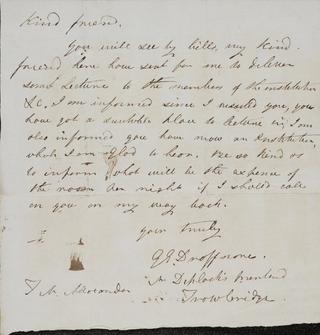 Kind friend,
You will see by bills, my kind
friend here have sent for me to deliver
some Lecture to the members of the institution
&c. I am informed since I you, you
have got a suitable place to lecture in, I am
also informed you have now an Institution,
which I am glad to hear. Be so kind as
to inform what will be the expense of
the room per night if I should call
on you on my way back.
your truly
Trowbridge